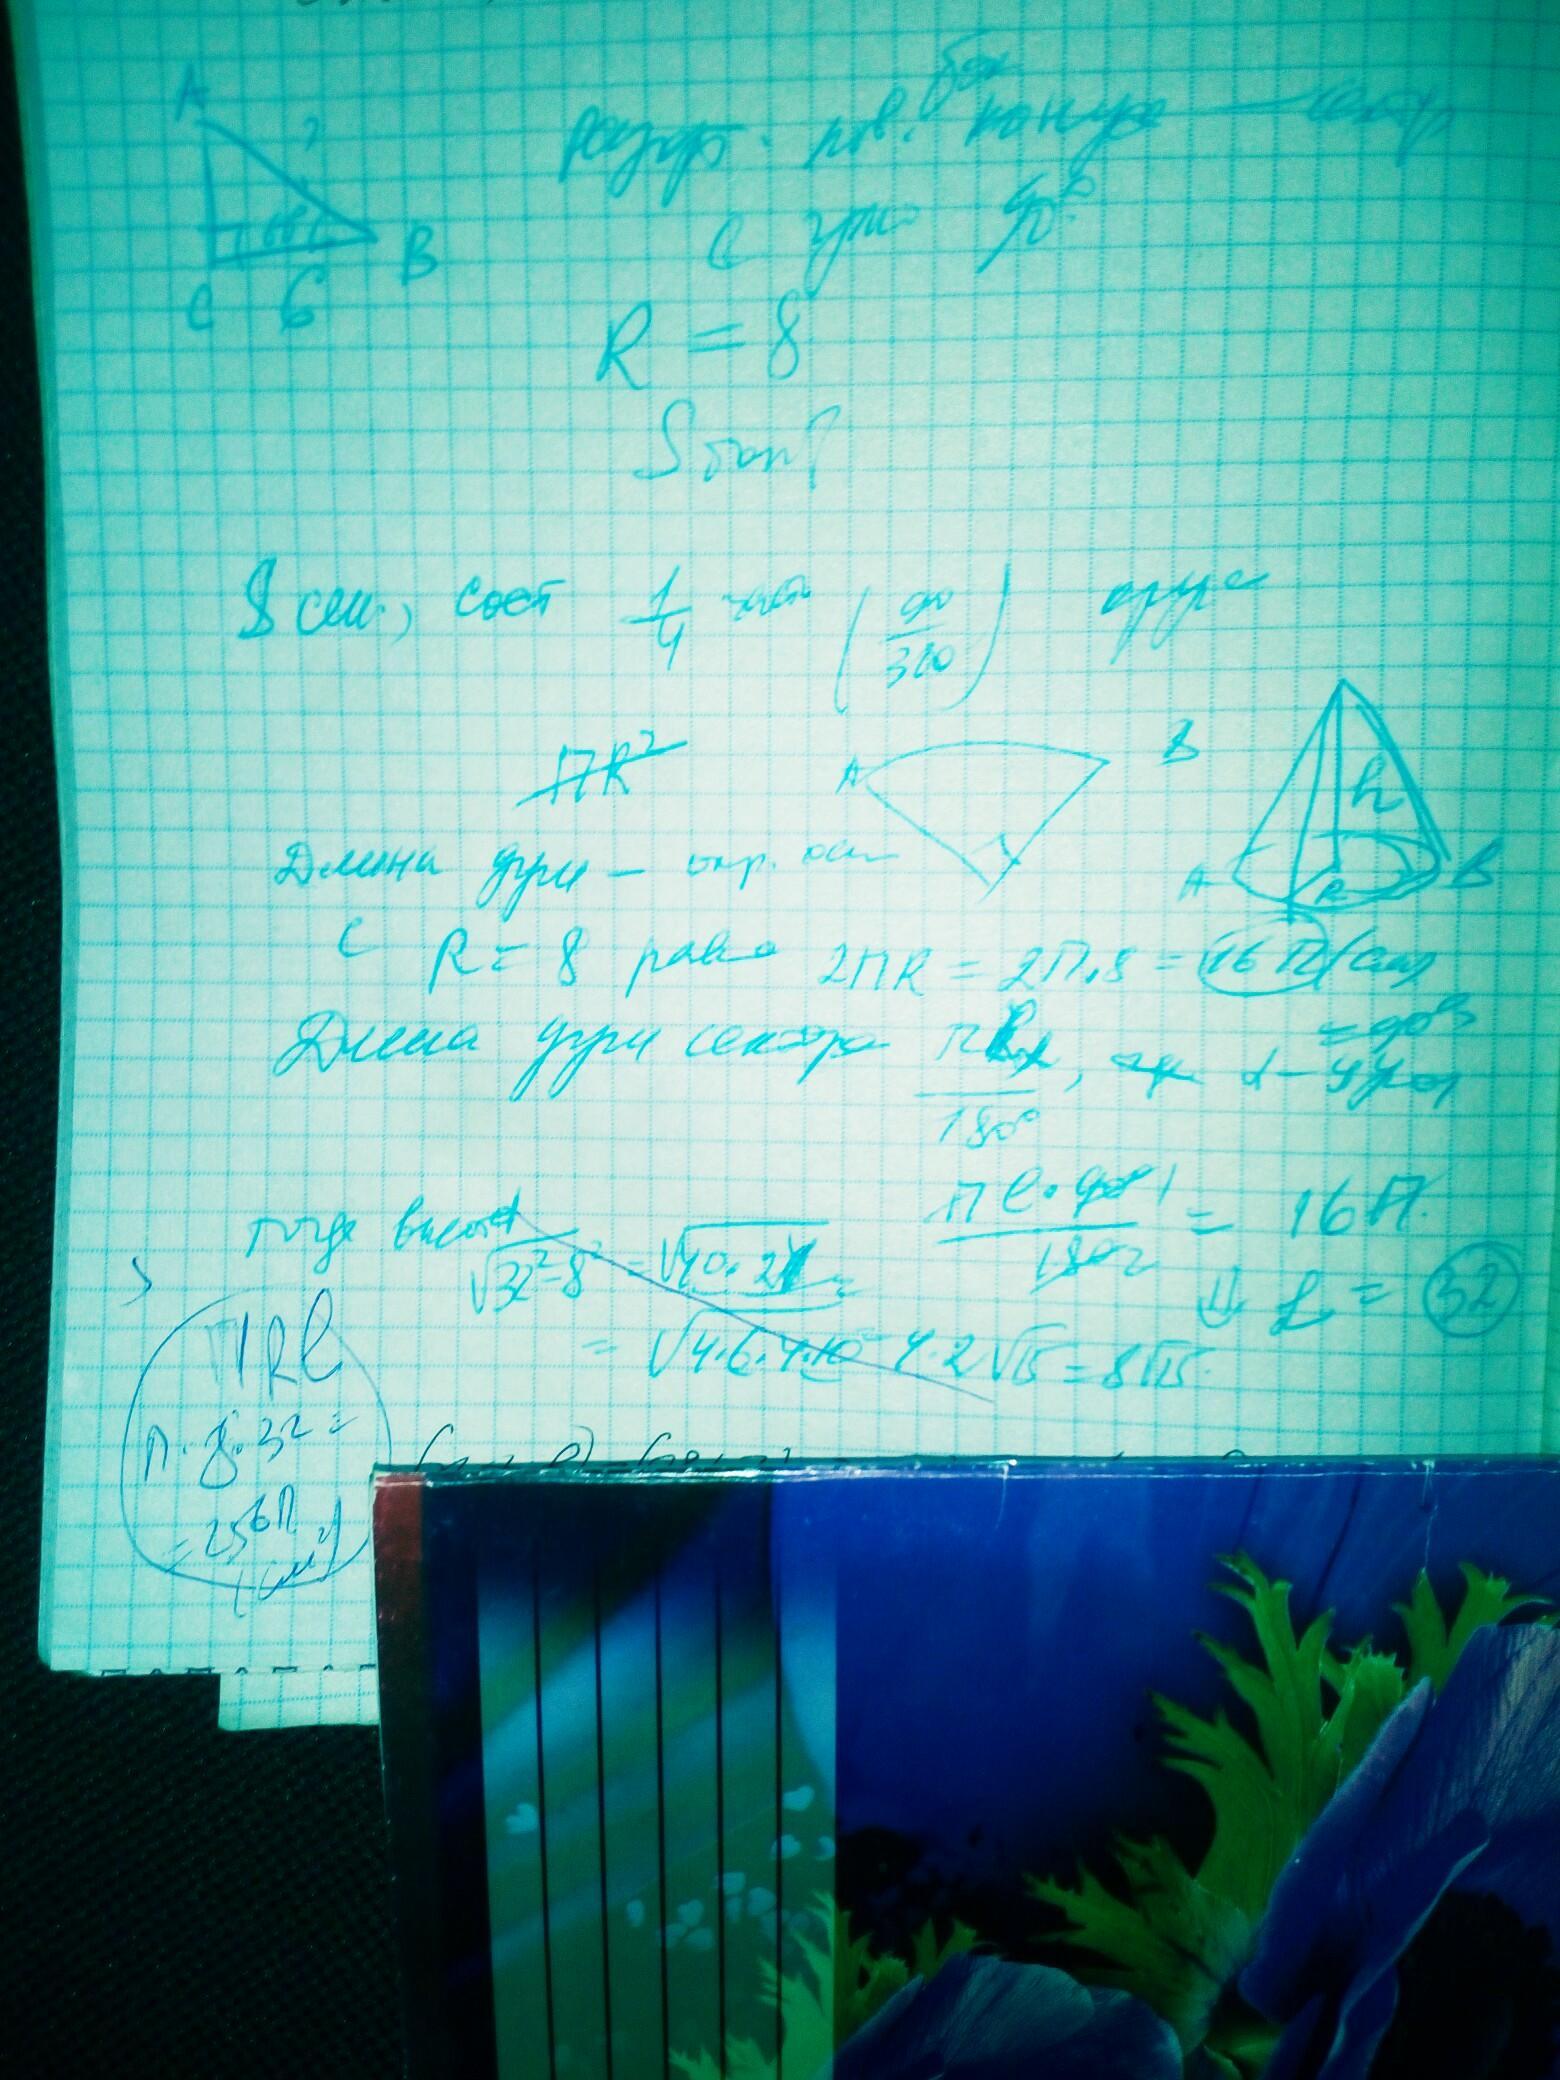 A
?
C 6 B
бок
разв. пов. конуса — сектор
с угл 90°
R = 8
Sбок?
S сек., сост 1/4 часть (90/360) круга
ПR²
A B
h
A R B
Длина дуги — окр. осн
с R = 8 равна 2ПR = 2П·8 = 16П (см)
Длина дуги сектора ПRα/180°, где α – угол = 90°
Пl·90°/180° = 16П
⇓ L = 32
тогда высота √32²-8² = √40·24 =
= √4·6·4·10 = 4·2√15 = 8√15
ПRl
П·8·32 =
= 256П
(см²)